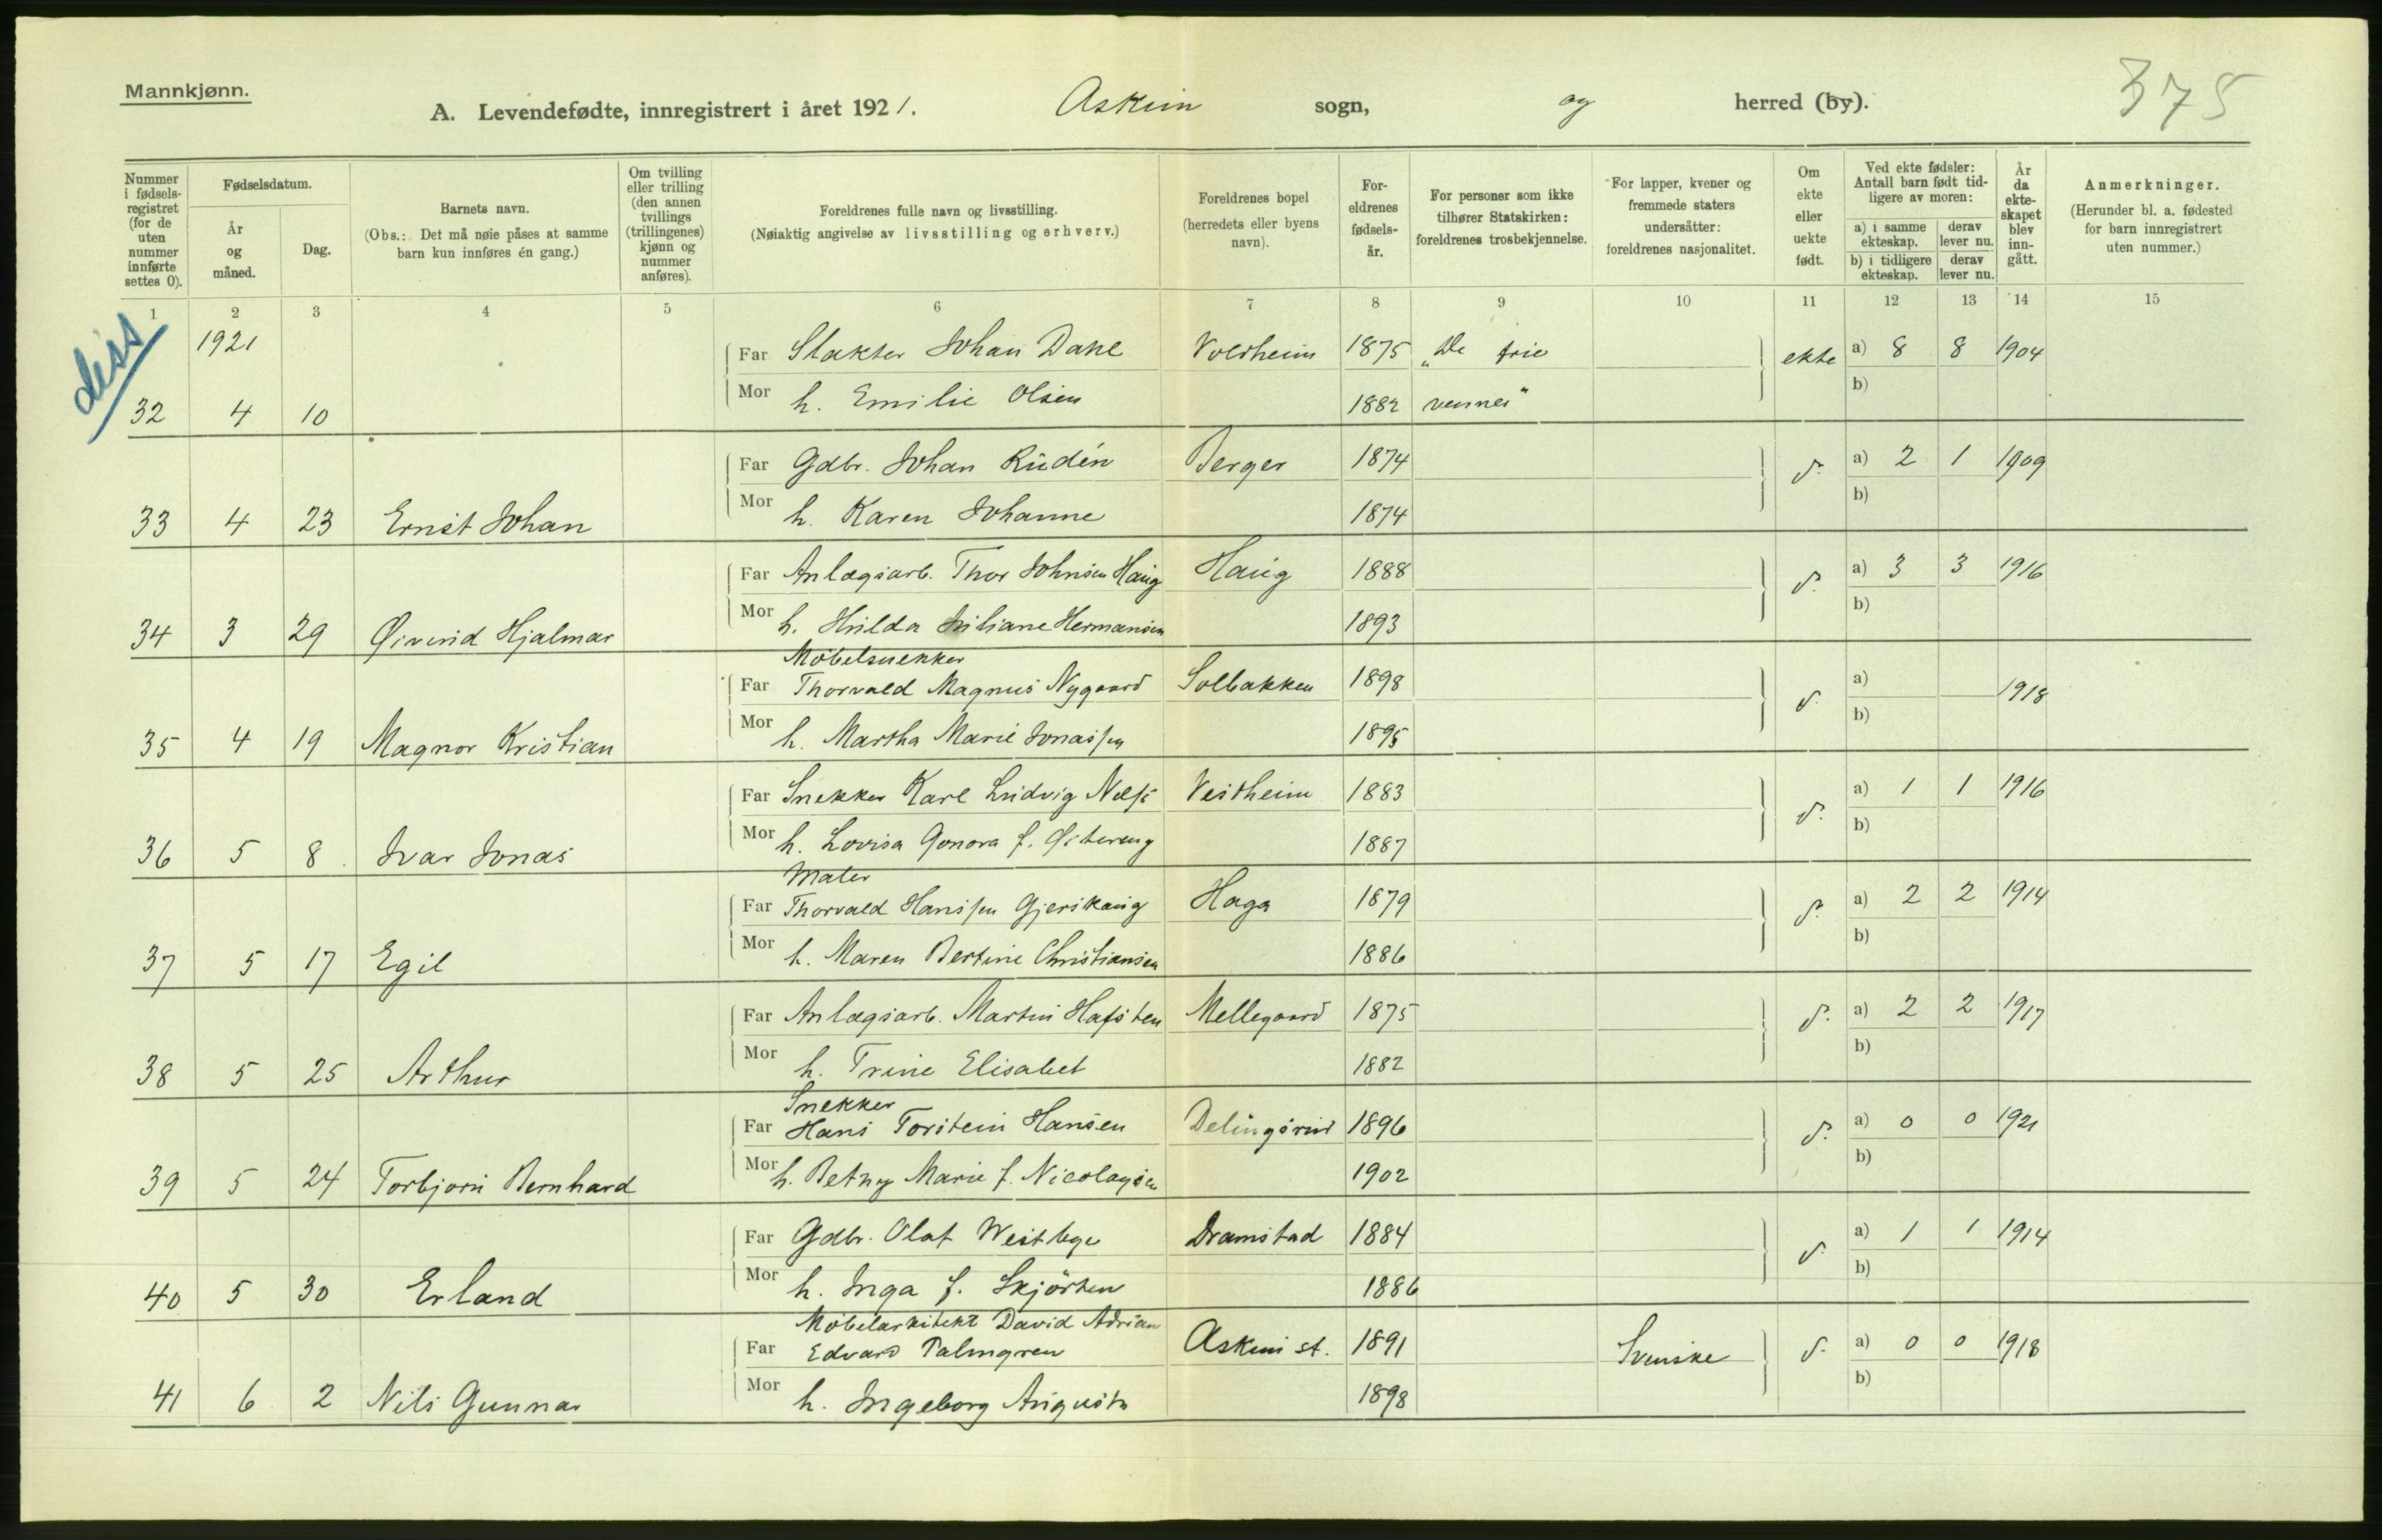 Mannkjønn.
A. Levendefødte, innregistrert i året 1921. Askim sogn, og herred (by).
375
Nummer i fødselsregistret (for de uten nummer innførte settes 0).
Fødselsdatum.
År og måned.
Dag.
Barnets navn.
(Obs.: Det må nøie påses at samme barn kun innføres én gang.)
Om tvilling eller trilling (den annen tvillings (trillingenes) kjønn og nummer anføres).
Foreldrenes fulle navn og livsstilling.
(Nøiaktig angivelse av livsstilling og erhverv.)
Foreldrenes bopel (herredets eller byens navn).
Foreldrenes fødselsår.
For personer som ikke tilhører Statskirken: foreldrenes trosbekjennelse.
For lapper, kvener og fremmede staters undersåtter: foreldrenes nasjonalitet.
Om ekte eller uekte født.
Ved ekte fødsler: Antall barn født tidligere av moren:
a) i samme ekteskap.
derav lever nu.
b) i tidligere ekteskap.
derav lever nu.
År da ekteskapet blev inngått.
Anmerkninger.
(Herunder bl. a. fødested for barn innregistrert uten nummer.)
1 2 3 4 5 6 7 8 9 10 11 12 13 14 15
diss
1921
Far Slakter Johan Dahl Voldheim 1875 "De frie ekte a) 8 8 1904
Mor h. Emilie Olsen 1882 venner" b)
32 4 10
Far Gdbr. Johan Rudén Berger 1874 d. a) 2 1 1909
Mor h. Karen Johanne 1874 b)
33 4 23 Ernst Johan
Far Anlægsarb. Thor Johnsen Haug Haug 1888 d. a) 3 3 1916
Mor h. Hilda Juliane Hermansen 1893 b)
34 3 29 Øivind Hjalmar
Møbelsnekker
Far Thorvald Magnus Nygaard Solbakken 1898 d. a) 1918
Mor h. Martha Marie Jonassen 1895 b)
35 4 19 Magnor Kristian
Far Snekker Karl Ludvig Vestheim 1883 d. a) 1 1 1916
Mor h. Lovisa Gonora f. Østereng 1887 b)
36 5 8 Ivar Jonas
Maler
Far Thorvald Hanssen Gjershaug Haga 1879 d. a) 2 2 1914
Mor h. Maren Bertine Christiansen 1886 b)
37 5 17 Egil
Far Anlægsarb. Martin Hafsten Mellegaard 1875 d. a) 2 2 1917
Mor h. Trine Elisabet 1882 b)
38 5 25 Arthur
Snekker
Far Hans Torstein Hansen Delingsrud 1896 d. a) 0 0 1921
Mor h. Betny Marie f. Nicolaysen 1902 b)
39 5 24 Torbjørn Bernhard
Far Gdbr. Olaf Westbye Dramstad 1884 d. a) 1 1 1914
Mor h. Inga f. Skjørten 1886 b)
40 5 30 Erland
Møbelarkitekt David Adrian
Far Edvard Palmgren Askim st. 1891 Svenske d. a) 0 0 1918
Mor h. Ingeborg Augusta 1898 b)
41 6 2 Nils Gunnar